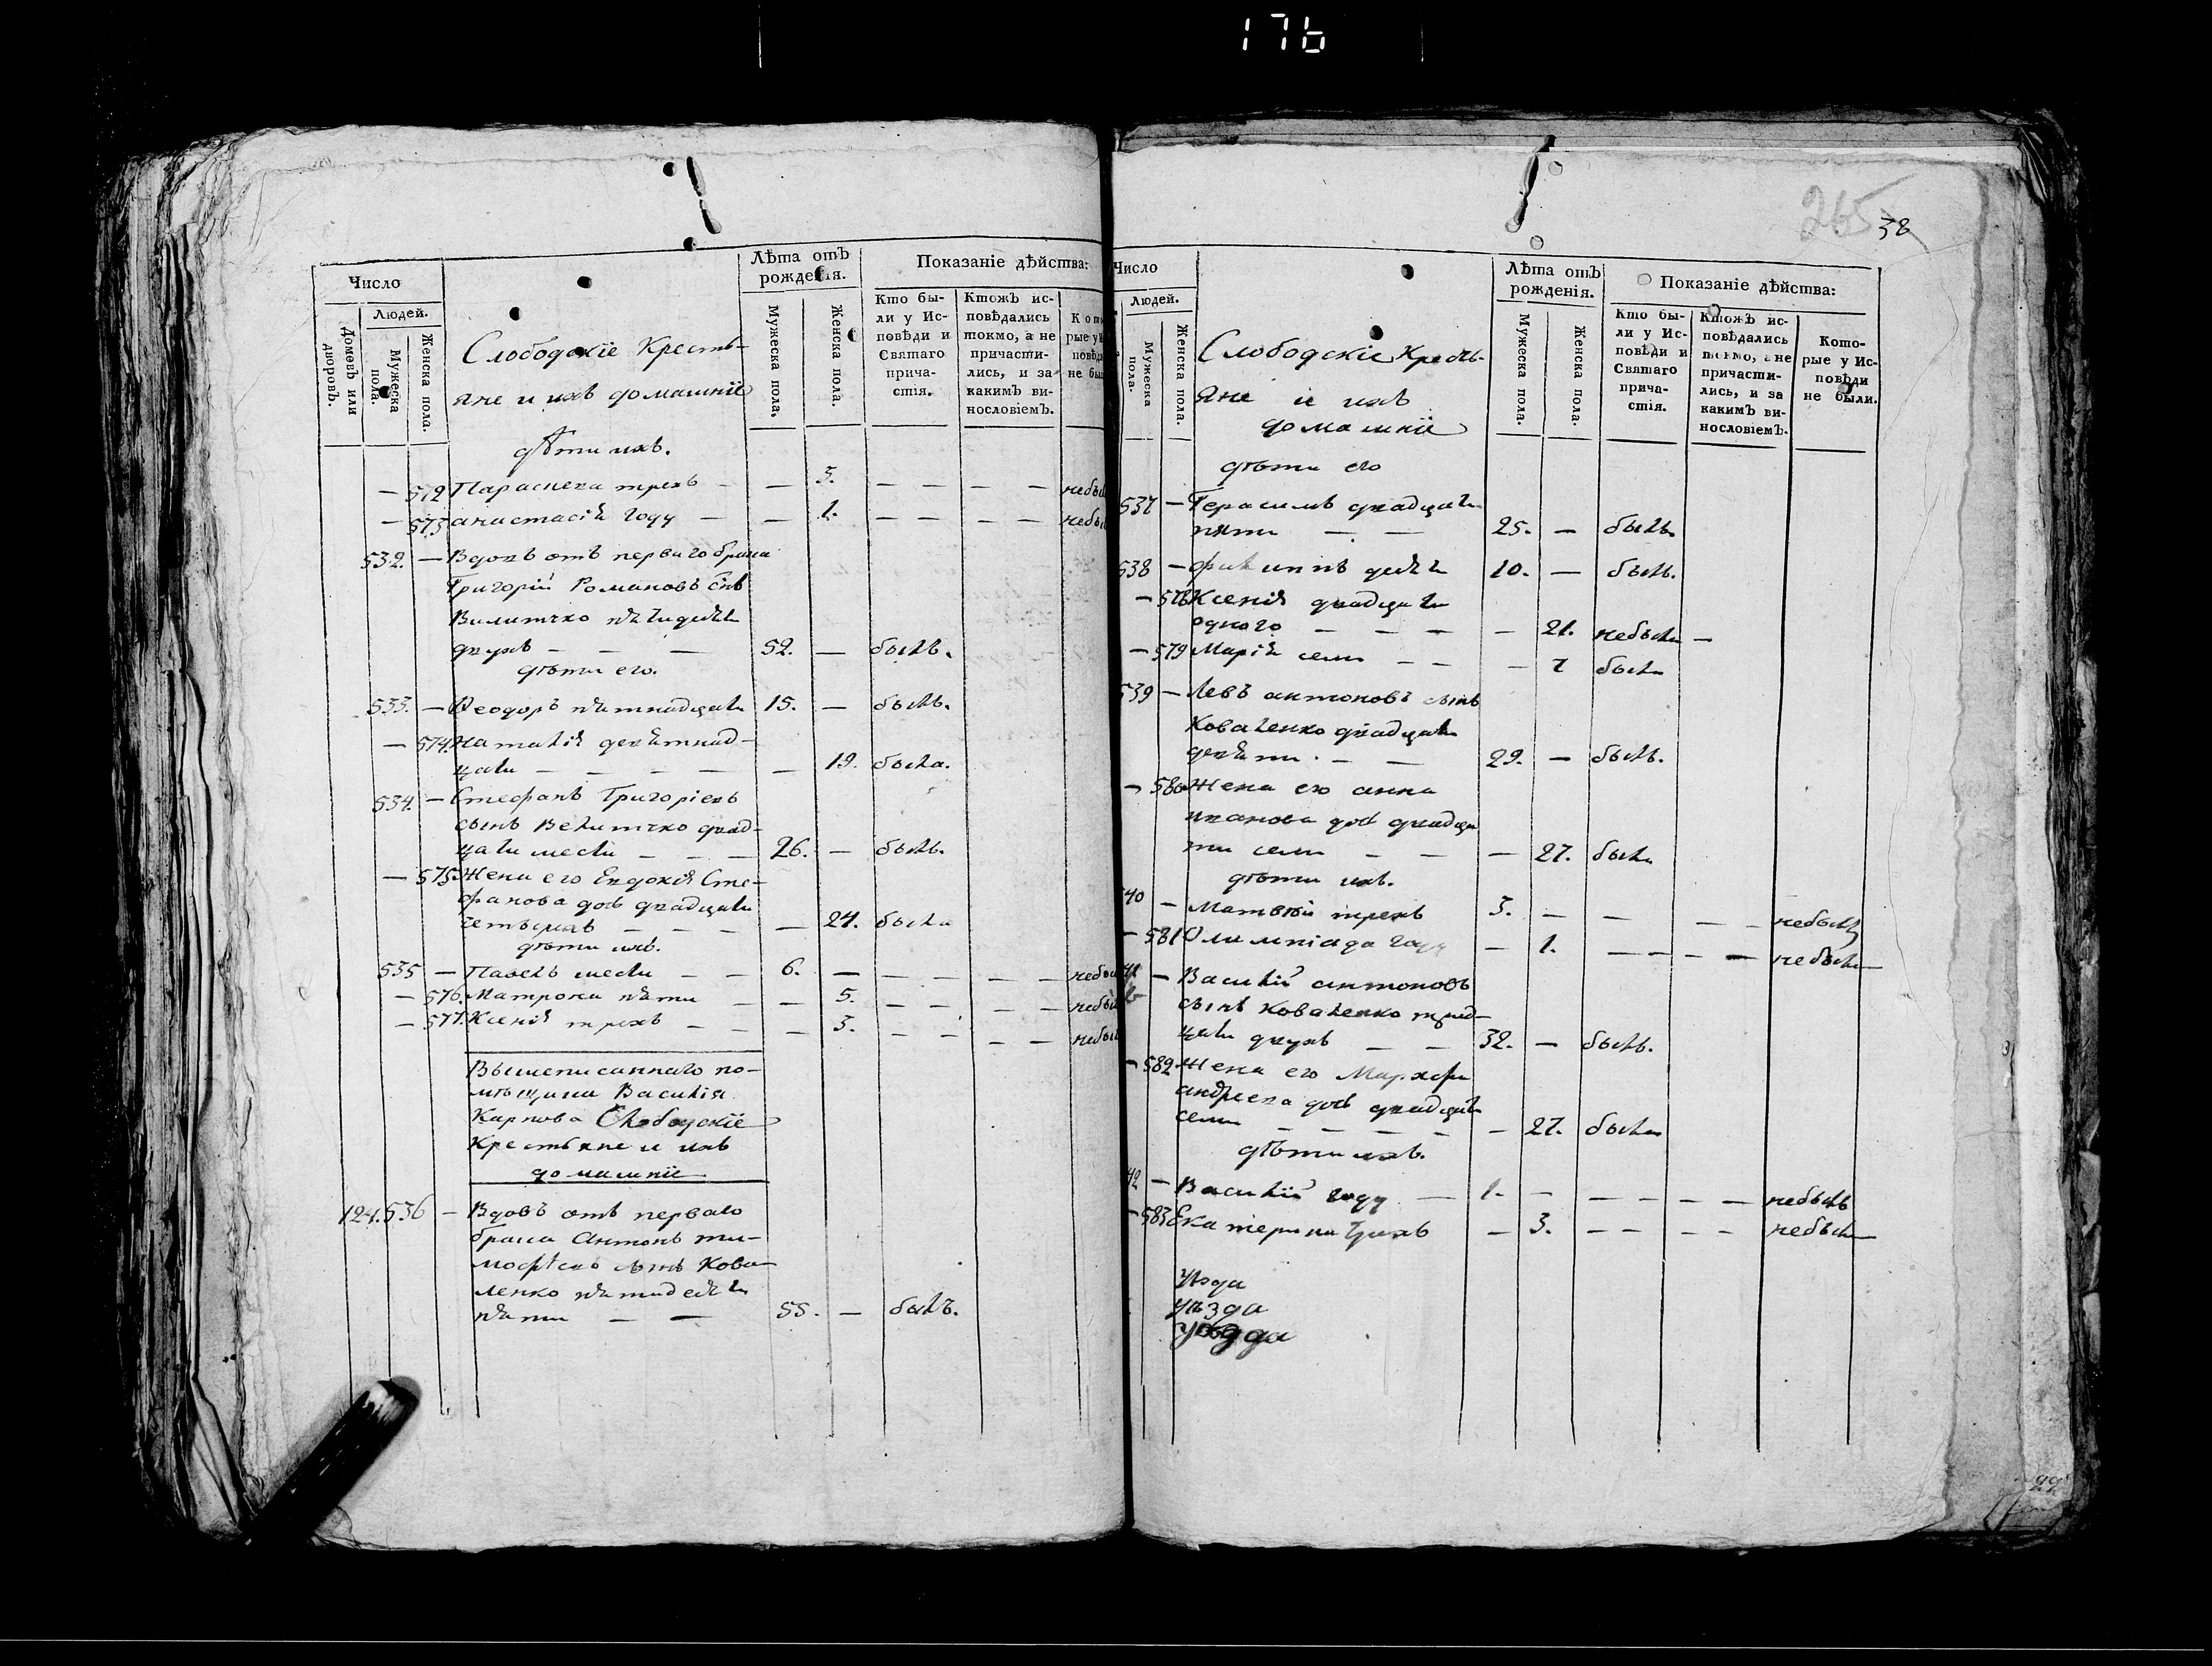 176
Число
Людей.
Домовъ или дворовъ.
Мужеска пола.
Женска пола.
Лѣта отъ рожденія.
Мужеска пола.
Женска пола.
Показаніе дѣйства:
Кто бы-
ли у Ис-
повѣди и
Святаго
прича-
стія.
Ктожъ ис-
повѣдались
токмо, а не
причасти-
лись, и за
какимъ ви-
нословіемъ.
Слободскіе Кресть-
яне и ихъ домашніе
дѣти ихъ.
— 572 Параскева трехъ — — 3. — — — — небы
— 573 анастасія году — — 1. — — — — небы
532. — Вдовъ отъ перваго брака
Григорій Романовъ снъ
Вилитчко пятидесят
двухъ — — — 52. — былъ.
дѣти его.
533. — Ѳеодоръ пятнадцати 15. — былъ.
— 574. Наталія девятнад-
цати — — — — — 19. была.
534. — Стефанъ Григоріевъ
сынъ Велитчко двад-
цати шести — — — 26. — былъ.
— 575 Жена его Евдокія Сте-
фанова доч двадцати
четырехъ — — — — 24. была
дѣти ихъ.
535 — Павелъ шести — — 6. — — — — — небы
— 576. Матрона пяти — — 5. — — — — небы
— 577. Ксенія трехъ — — — 3. — — — — небы
Вышеписаннаго по-
мѣщика Василія
Карпова Слободскіе
Крестьяне и ихъ
домашніе
124. 536 — Вдовъ отъ перваго
брака Антонъ ти-
мофѣевъ снъ Кова-
ленко пятидесят
пяти — — 55. — былъ.
265 38
Число
Людей.
Мужеска пола.
Женска пола.
Лѣта отъ рожденія.
Мужеска пола.
Женска пола.
Показаніе дѣйства:
Кто бы-
ли у Ис-
повѣди и
Святаго
прича-
стія.
Ктожъ ис-
повѣдались
токмо, а не
причасти-
лись, и за
какимъ ви-
нословіемъ.
Кото-
рые у Ис-
повѣди
не были.
Слободскіе Кресть-
яне и ихъ
домашніе
дѣти его
537 — Герасимъ двадцати
пяти — — 25. — былъ.
538 — филиппъ десяти 10. — былъ.
— 578 Ксенія двадцати
одного — — — — 21. небыла —
— 579 Марія семи — — — 7 была
539 — Левъ антоновъ снъ
Коваленко двадцати
девяти. — — 29. — былъ.
— 580 Жена его анна
иванова доч двадца
ти семи — — — 27. была
дѣти ихъ.
40 — Матвѣй трехъ 3. — — — — небылъ
— 581 Олимпіада году — 1. — — — — небыла
41 — Василій антоновъ
сынъ Коваленко трид-
цати двухъ — — 32. — былъ.
— 582 Жена его Марѳа
андреева доч двадцати
семи — — — — — 27. была
дѣти ихъ.
42 — Василій году — 1. — — — — — небылъ
— 583 Екатерина трехъ — 3. — — — — небыла
уѣзда